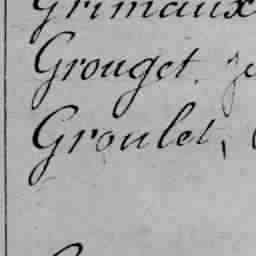 Grimaux
Grouget.
Groulet,